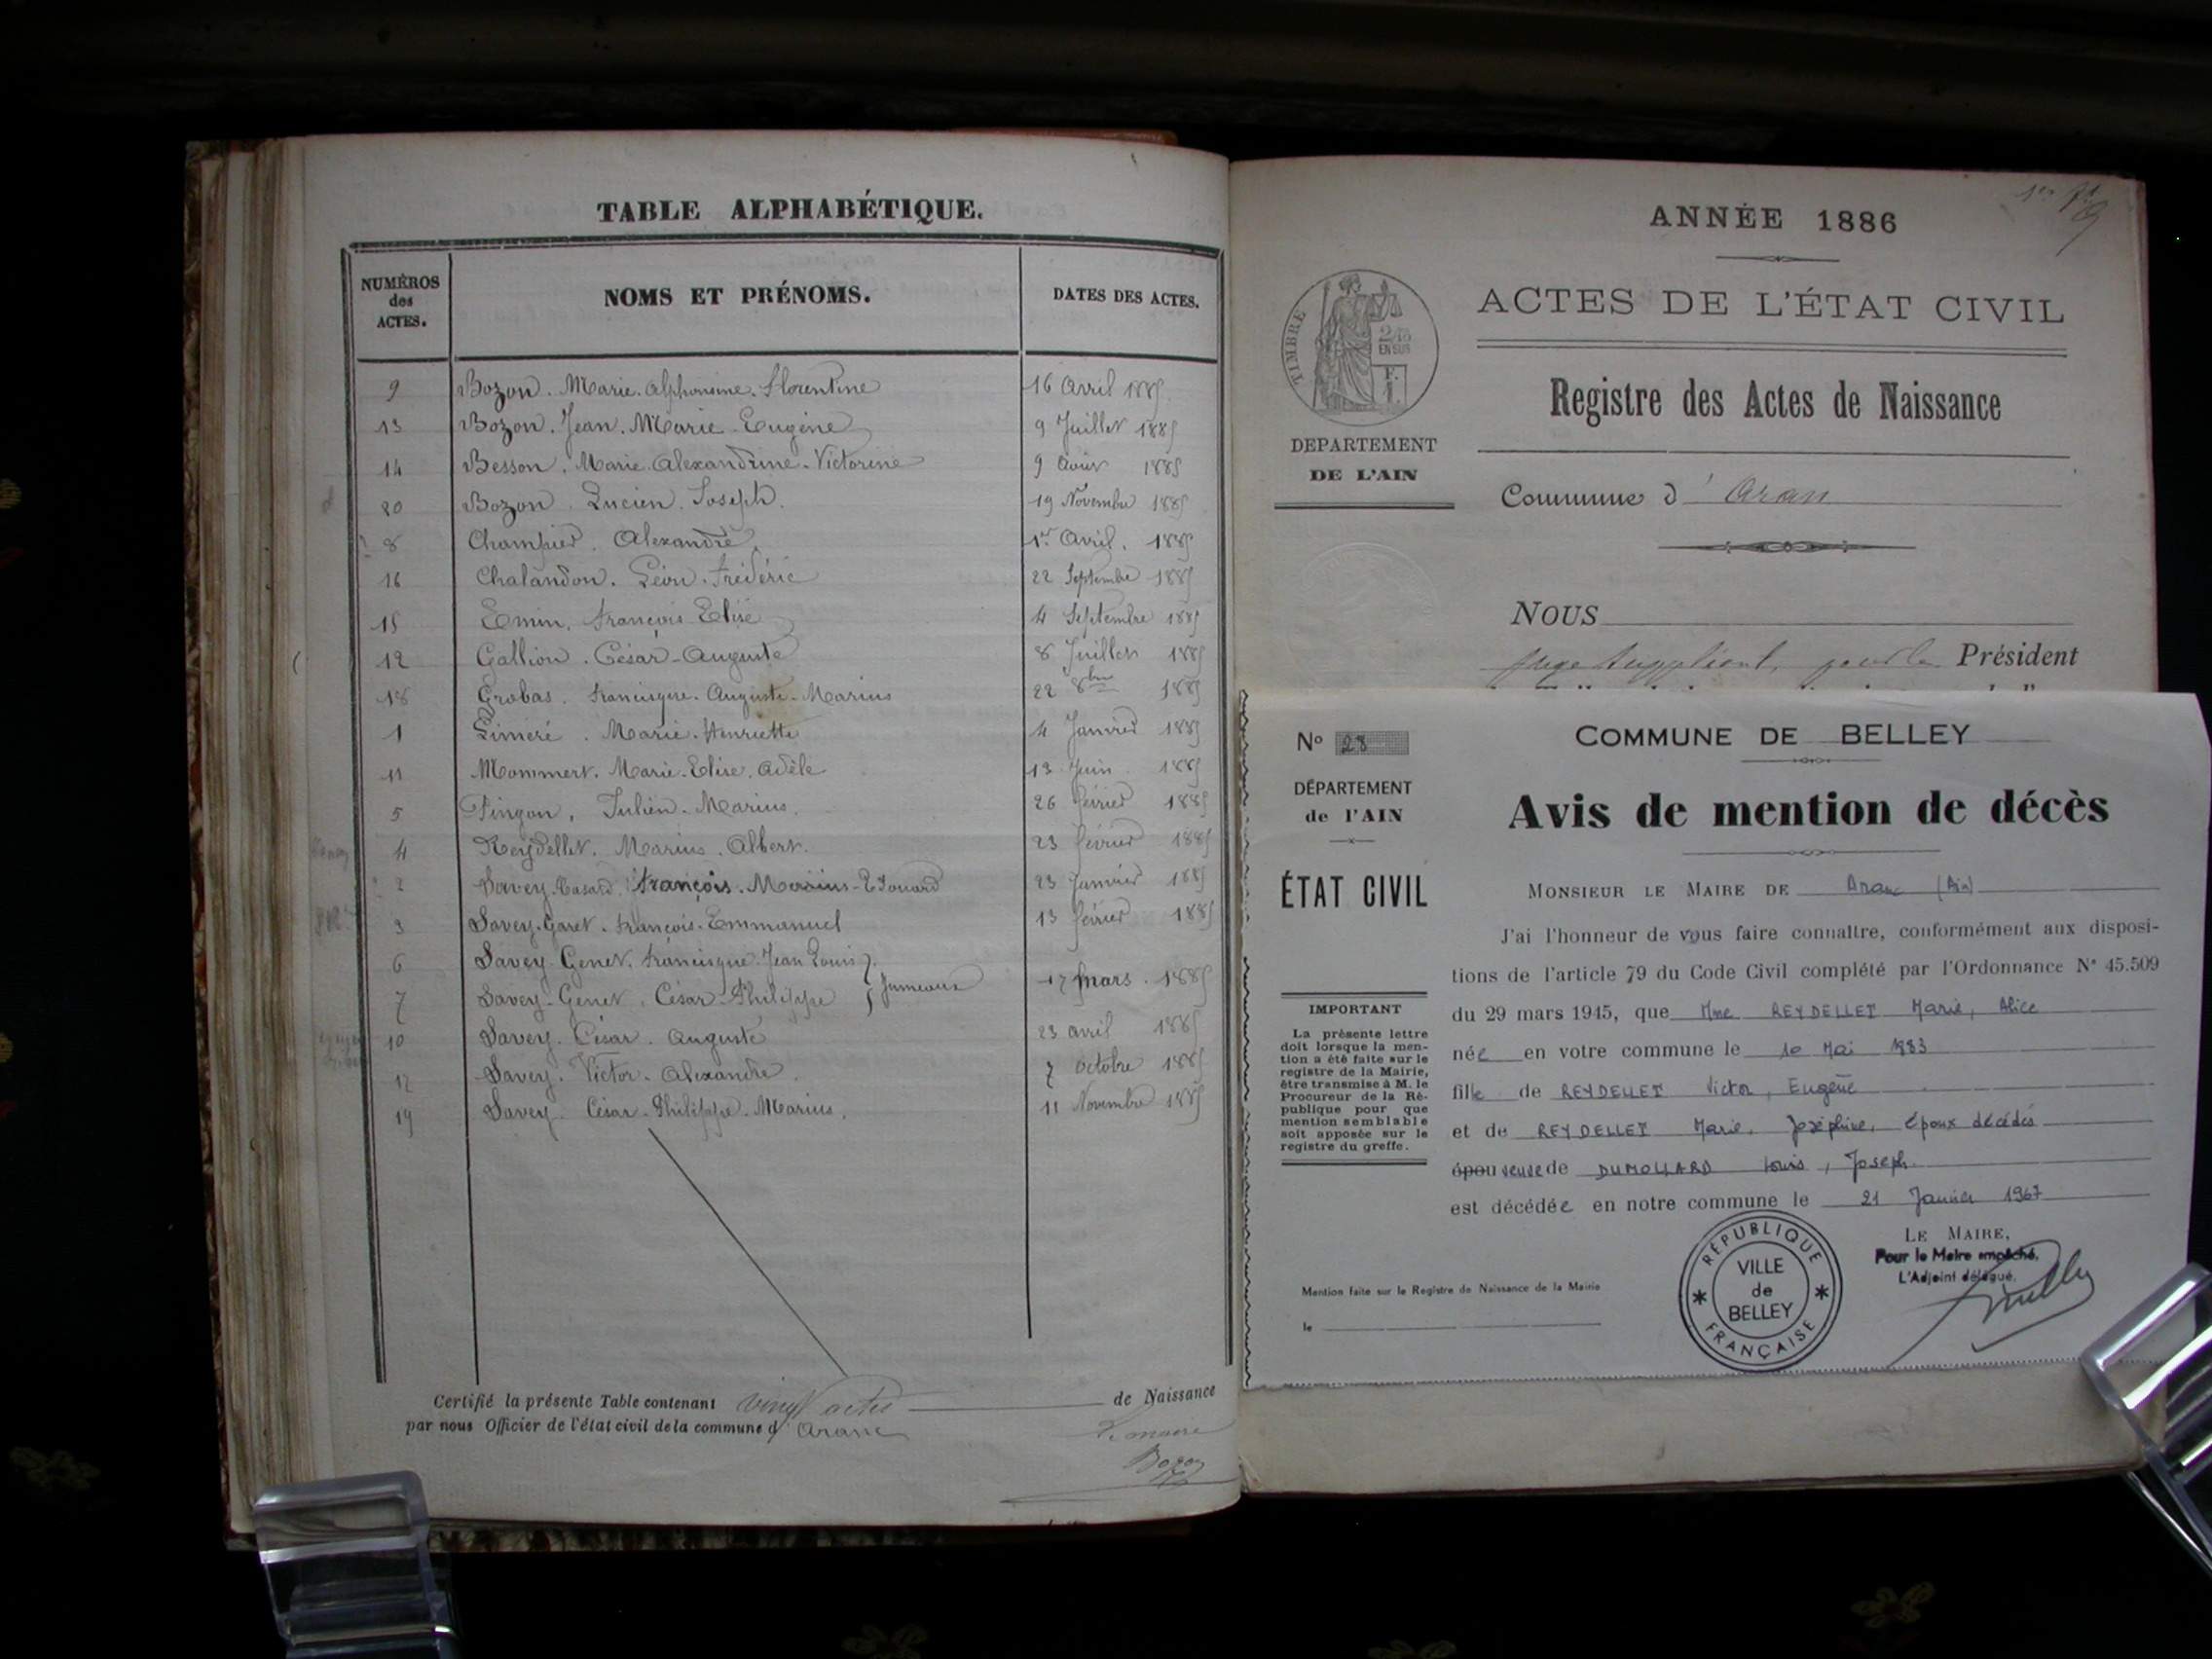 TABLE ALPHABÉTIQUE.
NUMÉROS des ACTES. NOMS ET PRÉNOMS. DATES DES ACTES.
9 Bozon. Marie. Alphonsine. Florentine 16 Avril 1885.
13 Bozon. Jean. Marie Eugène 9 Juillet 1885
14 Besson. Marie. Alexandrine. Victorine 9 Août 1885
20 Bozon. Lucien. Joseph. 19 Novembre 1885
8 Champier. Alexandre. 1er Avril. 1885
16 Chalandon. Léon. Frédéric 22 Septembre 1885
15 Emin. François Elisé 4 Septembre 1885
12 Gallion. César-Auguste 8 Juillet 1885
18 Grobas. Francisque. Auguste. Marius 22 8bre 1885
1 Liméré. Marie. Henriette 4 Janvier 1885
11 Mommert. Marie. Elise. Adèle 13 Juin 1885
5 Pingon, Julien. Marius. 26 février 1885
4 Reydellet. Marius. Albert. 23 février 1885
2 Savey. François. Marius-Edouard 23 Janvier 1885
3 Savey-Garet. François. Emmanuel 13 février 1885
6 Savey Genet. Francisque. Jean Louis
7 Savey-Genet. César-Philippe Jumeaux 17 mars. 1885
10 Savey. César. Auguste 23 avril 1885
17 Savey. Victor. Alexandre. 7 octobre 1885
19 Savey. César-Philippe. Marius. 11 Novembre 1885
Certifié la présente Table contenant vingt actes de Naissance
par nous Officier de l'état civil de la commune d' Aranc
Le maire
Bozon
ANNÉE 1886
TIMBRE
2/10 EN SUR
DEPARTEMENT
DE L'AIN
ACTES DE L'ÉTAT CIVIL
Registre des Actes de Naissance
Commune d' Aran
NOUS
juge suppléant, pour le Président
No 28
DÉPARTEMENT
de l'AIN
ÉTAT CIVIL
IMPORTANT
La présente lettre
doit lorsque la men-
tion a été faite sur le
registre de la Mairie,
être transmise à M. le
Procureur de la Ré-
publique pour que
mention semblable
soit apposée sur le
registre du greffe.
COMMUNE DE BELLEY
Avis de mention de décès
MONSIEUR LE MAIRE DE Aranc (Ain)
J'ai l'honneur de vous faire connaître, conformément aux disposi-
tions de l'article 79 du Code Civil complété par l'Ordonnance N° 45.509
du 29 mars 1945, que Mme REYDELLET Marie, Alice
née en votre commune le 10 Mai 1883
fille de REYDELLET Victor, Eugène
et de REYDELLET Marie, Joséphine, époux décédés
épou veuve de DUMOLLARD Louis, Joseph.
est décédée en notre commune le 21 Janvier 1967
LE MAIRE,
Pour le Maire empêché.
L'Adjoint délégué.
RÉPUBLIQUE FRANÇAISE
VILLE
de
BELLEY
Mention faite sur le Registre de Naissance de la Mairie
le